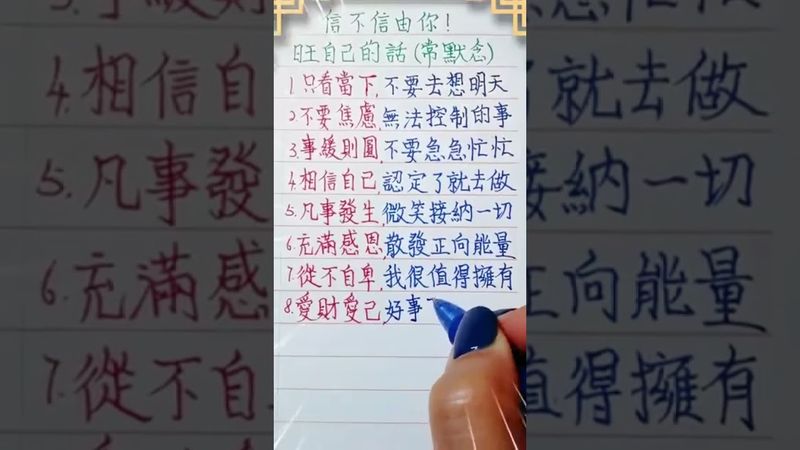 信不信由你！
旺自己的話(常默念)
1.只看當下,不要去想明天
2.不要焦慮,無法控制的事
3.事緩則圓,不要急急忙忙
4.相信自己認定了就去做
5.凡事發生,微笑接納一切
6.充滿感恩,散發正向能量
7.從不自卑,我很值得擁有
8.愛財愛己好事